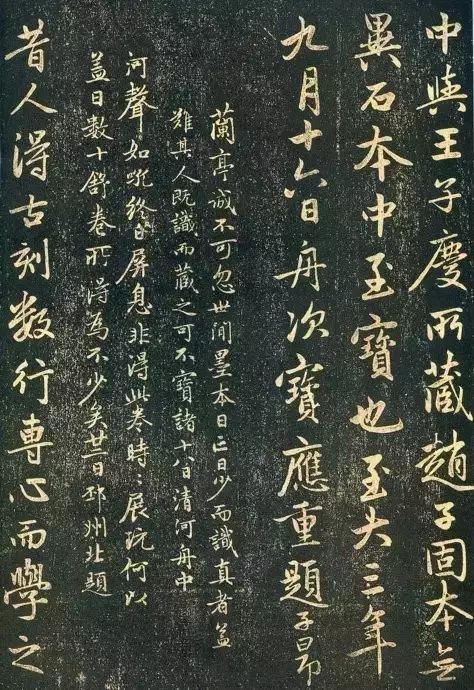 中與王子慶所藏趙子固本無
異石本中至寶也至大三年
九月十六日舟次寶應重題子昂
蘭亭誠不可忽世間墨本日亡日少而識真者蓋
難其人既識而藏之可不寶諸十八日清河舟中
河聲如吼終日屏息非得此卷時時展玩何以
盖日數十舒卷所得為不少矣廿二日邳州北題
昔人得古刻數行專心而學之